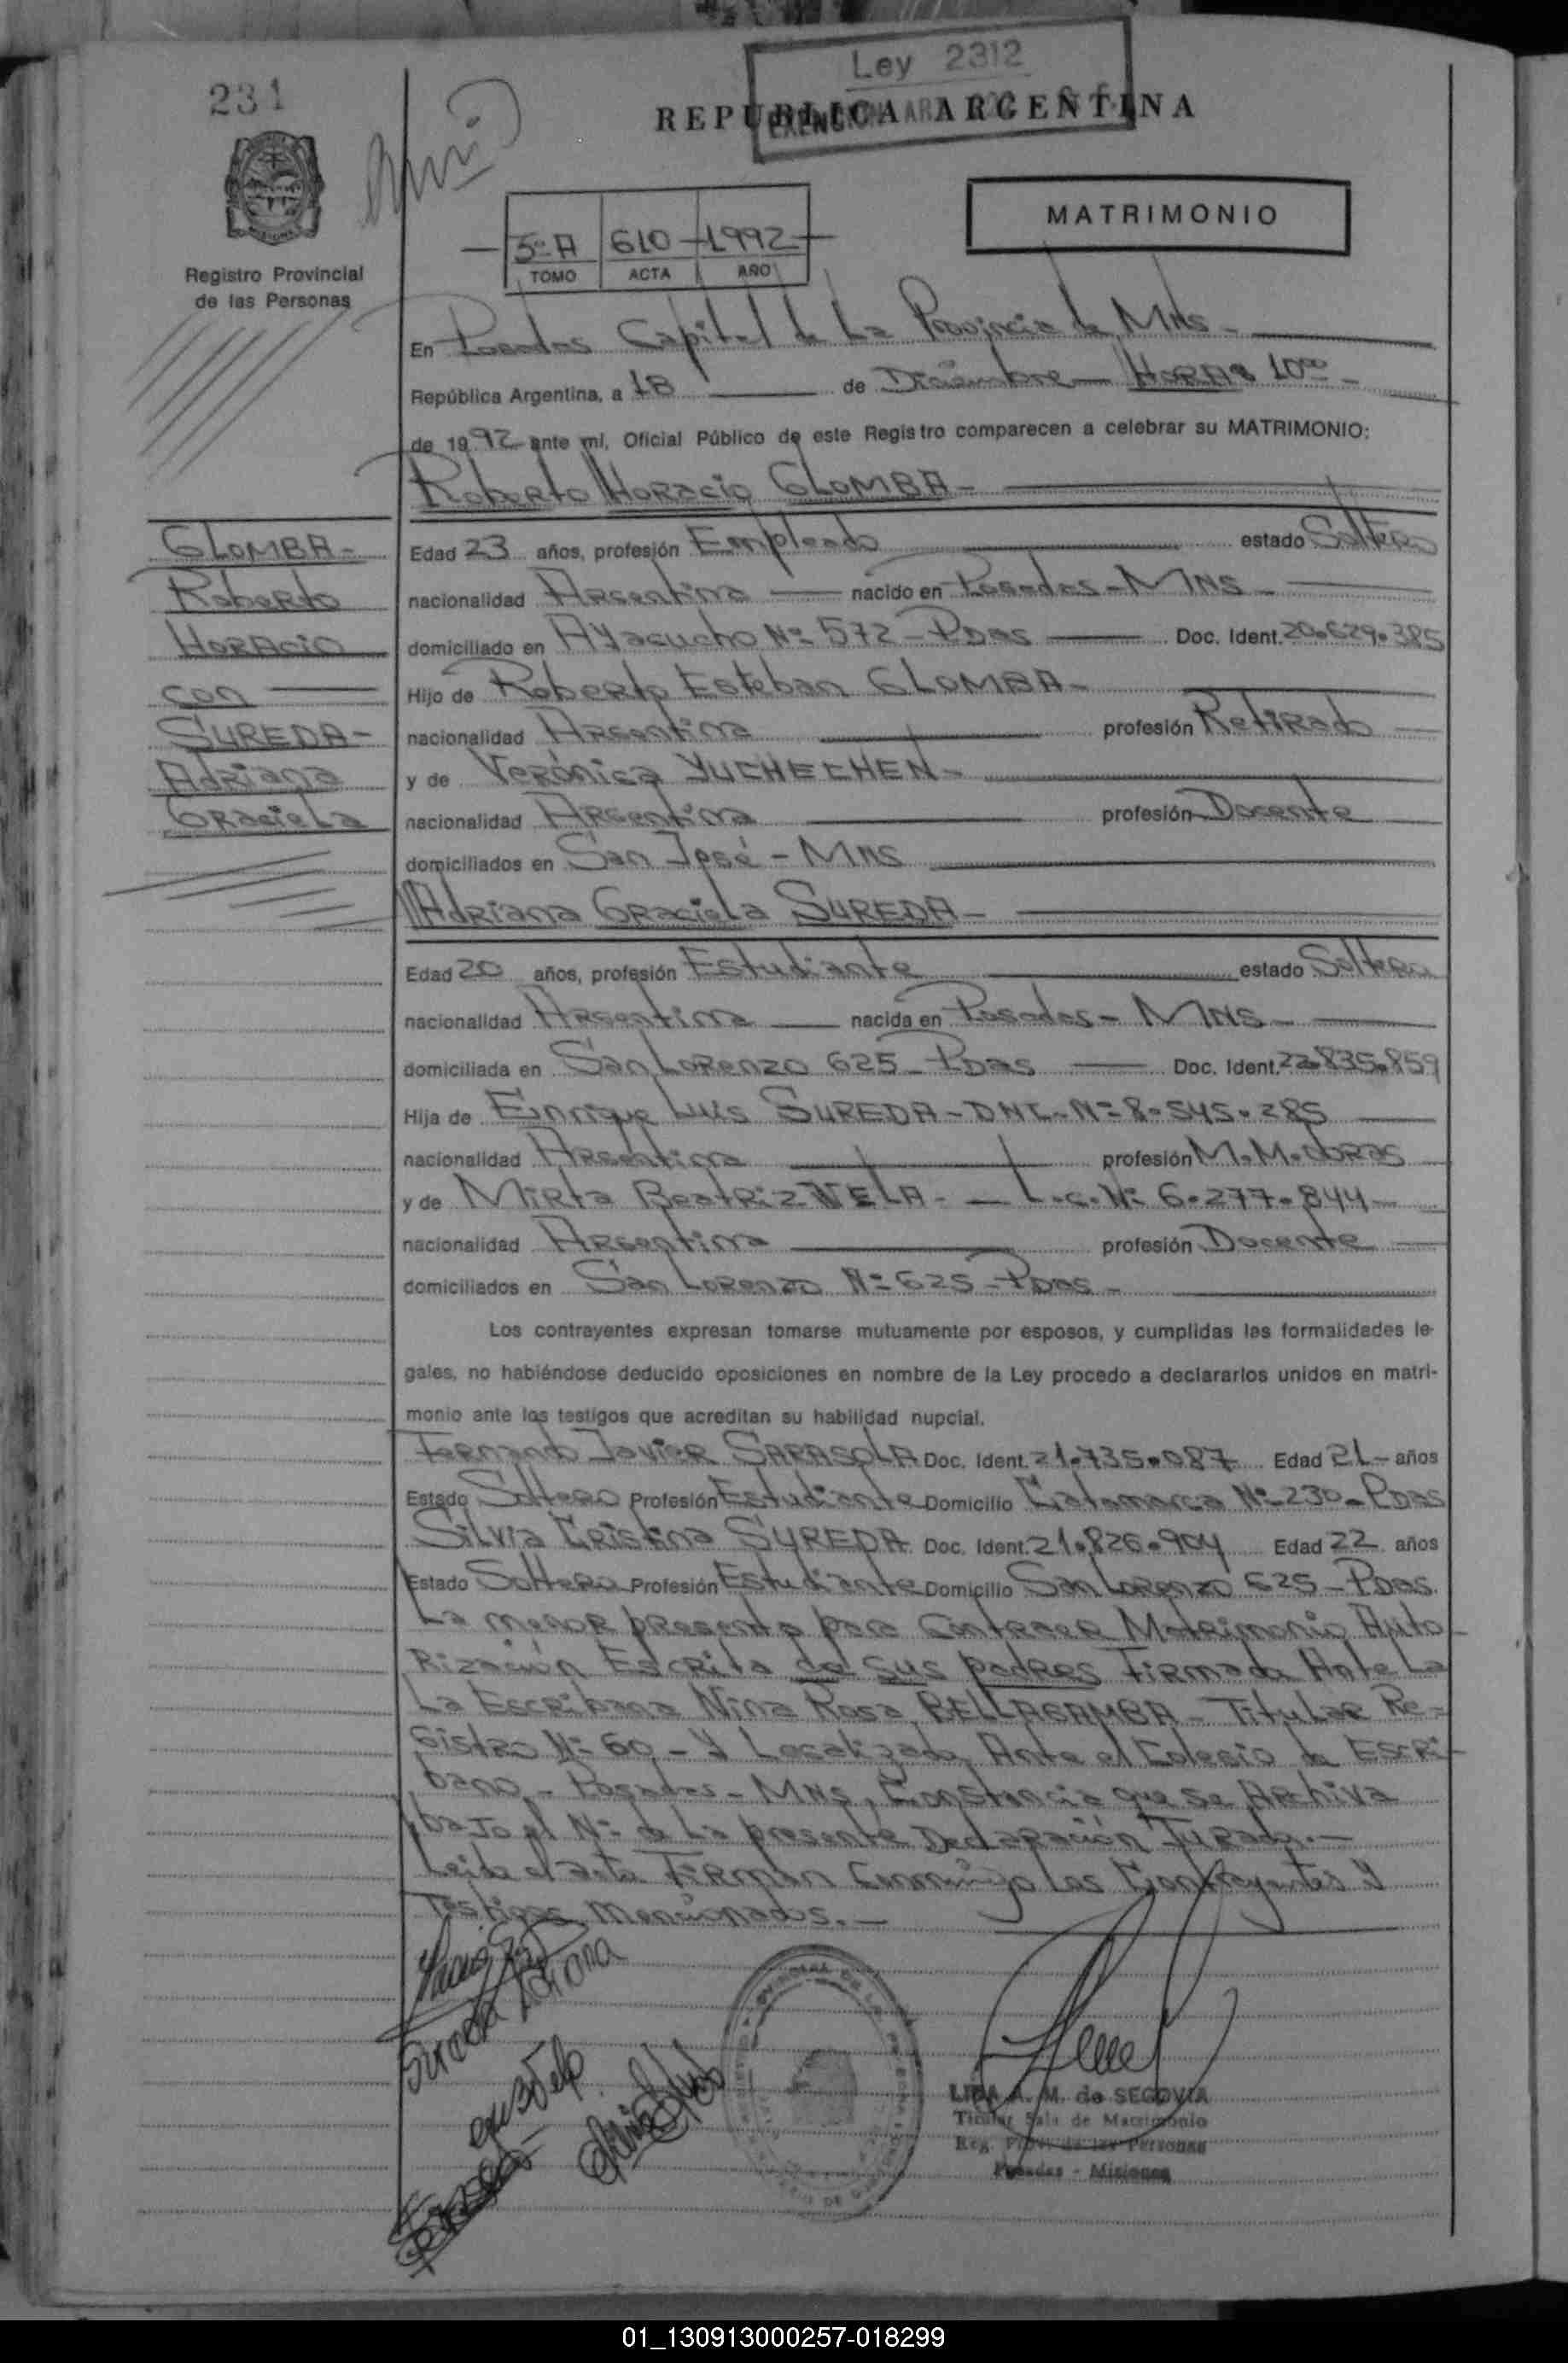 231
Ley 2312
REPUBLICA ARGENTINA
MATRIMONIO
5º A 610 1992
TOMO ACTA AÑO
Registro Provincial
de las Personas
En Posadas Capital de La Provincia de Mns -
República Argentina, a 18 de Diciembre - HORAS 10⁰⁰ -
de 1992 ante mí, Oficial Público de este Registro comparecen a celebrar su MATRIMONIO:
Roberto Horacio GLOMBA -
GLOMBA -
Roberto
Horacio
con
SUREDA -
Adriana
Graciela
Edad 23 años, profesión Empleado estado Soltero
nacionalidad Argentina nacido en Posadas - MNS -
domiciliado en Ayacucho Nº 572 - PDas Doc. Ident. 20.629.385
Hijo de Roberto Esteban GLOMBA -
nacionalidad Argentina profesión Retirado
y de Verónica YUCHECHEN -
nacionalidad Argentina profesión Docente
domiciliados en San José - MNS
Adriana Graciela SUREDA -
Edad 20 años, profesión Estudiante estado Soltera
nacionalidad Argentina nacida en Posadas - MNS -
domiciliada en San Lorenzo 625 - PDas Doc. Ident. 22.835.859
Hija de Enrique Luis SUREDA - DNI - Nº 8.545.285
nacionalidad Argentina profesión M.M. Obras
y de Mirta Beatriz VELA - L.C. Nº 6.277.844
nacionalidad Argentina profesión Docente
domiciliados en San Lorenzo Nº 625 - PDas -
Los contrayentes expresan tomarse mutuamente por esposos, y cumplidas las formalidades le-
gales, no habiéndose deducido oposiciones en nombre de la Ley procedo a declararlos unidos en matri-
monio ante los testigos que acreditan su habilidad nupcial.
Fernando Javier SARASOLA Doc. Ident. 21.735.087 Edad 21 - años
Estado Soltero Profesión Estudiante Domicilio Catamarca Nº 230 - PDas
Silvia Cristina SUREDA Doc. Ident. 21.826.904 Edad 22 años
Estado Soltera Profesión Estudiante Domicilio San Lorenzo 625 - PDas.
La menor presenta para Contraer Matrimonio Auto-
rización Escrita de sus padres Firmada Ante La
La Escribana Nina Rosa BELLAGAMBA - Titular Re-
gistro Nº 60 - Y Legalizada Ante el Colegio de Escri-
bano - Posadas - MNS, Constancia que se Archiva
bajo el Nº de La presente Declaración Jurada. -
Leída el acta Firman Conmigo Los Contrayentes y
Testigos Mencionados. -
Sureda Adriana
LIRA A. M. de SEGOVIA
Titular Sala de Matrimonio
Reg. Prov. de las Personas
Posadas - Misiones
01_130913000257-018299